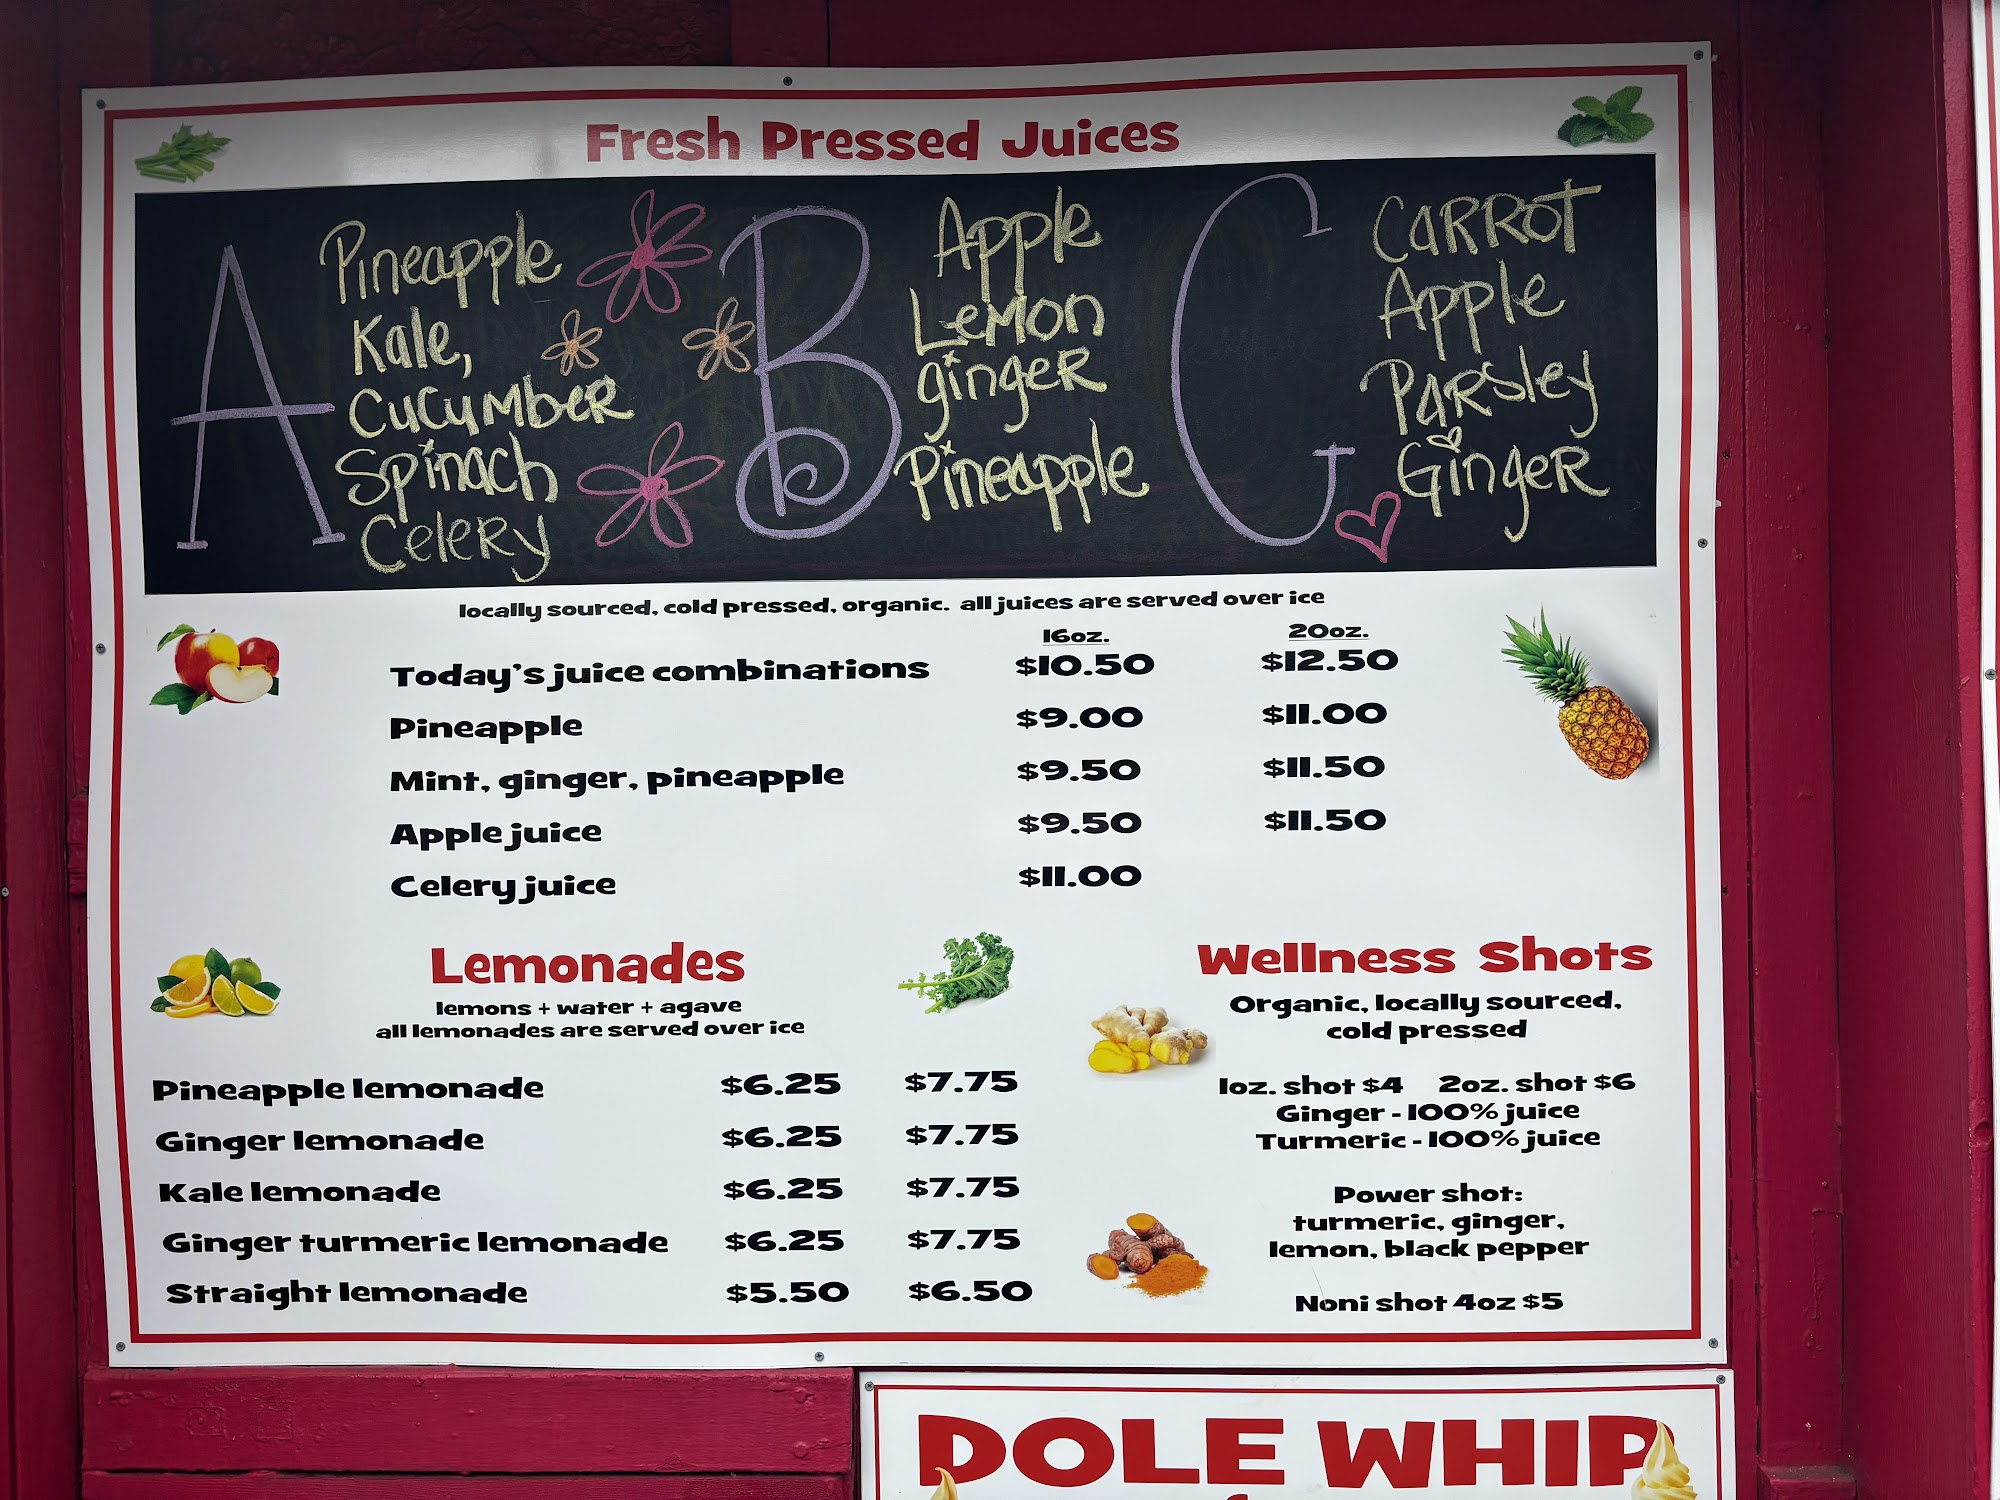 Fresh Pressed Juices
A
Pineapple
Kale,
Cucumber
Spinach
Celery
B
Apple
Lemon
ginger
Pineapple
C
Carrot
Apple
Parsley
Ginger
locally sourced, cold pressed, organic. all juices are served over ice
16oz. 20oz.
Today's juice combinations $10.50 $12.50
Pineapple $9.00 $11.00
Mint, ginger, pineapple $9.50 $11.50
Apple juice $9.50 $11.50
Celery juice $11.00
Lemonades
lemons + water + agave
all lemonades are served over ice
Pineapple lemonade $6.25 $7.75
Ginger lemonade $6.25 $7.75
Kale lemonade $6.25 $7.75
Ginger turmeric lemonade $6.25 $7.75
Straight lemonade $5.50 $6.50
Wellness Shots
Organic, locally sourced,
cold pressed
1oz. shot $4 2oz. shot $6
Ginger - 100% juice
Turmeric - 100% juice
Power shot:
turmeric, ginger,
lemon, black pepper
Noni shot 4oz $5
DOLE WHIP